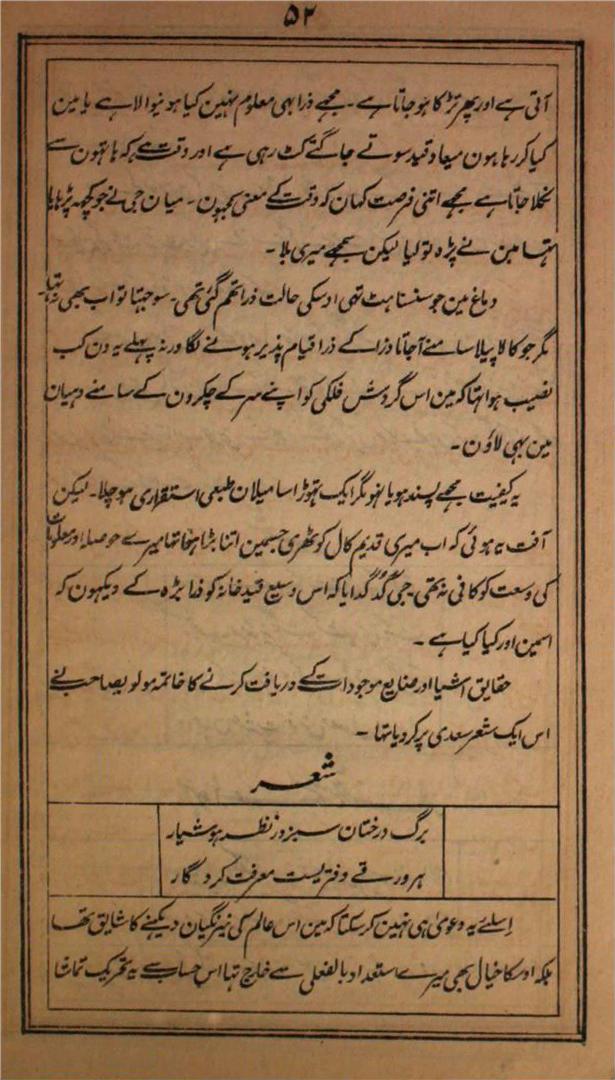 ۵۲
آتی ہے اور پھر تڑکا ہو جاتا ہے ۔ مجھے ذرا بھی معلوم نہین کیا ہونیوالا ہے یا مین
کیا کر رہا ہون میعاد قید سوتے جاگتے کٹ رہی ہے اور وقت ہے کہ ہاتھون سے
نکلا جاتا ہے مجھے اتنی فرصت کہان کہ وقت کے معنی سمجھون ۔ میان جی نے جو کچھ پڑھایا
تھا مین نے پڑہ تو لیا لیکن سمجھے میری بلا ۔
دماغ مین جو سنسناہٹ تھی اوسکی حالت ذرا تھم گئی تھی ۔ سوجھتا تو اب بھی نہ تھا
مگر جو کالا پیلا سامنے آجاتا ذرا کے ذرا قیام پذیر ہونے لگا ورنہ پہلے یہ دن کب
نصیب ہوا تھا کہ مین اس گردش فلکی کو اپنے سر کے چکرون کے سامنے دہیان
مین بھی لاؤن ۔
یہ کیفیت مجھے پسند ہو یا نہو مگر ایک تھوڑا سا میلان طبعی استقراری ہو چلا ۔ لیکن
آفت یہ ہوئی کہ اب میری قدیم کال کوٹھری جسمین اتنا بڑا ہوا تھا میرے حوصلہ اور معلومات
کی وسعت کو کافی نہ تھی جی گُد گُدایا کہ اس وسیع قید خانہ کو ذرا بڑہ کے دیکھون کہ
اسمین اور کیا کیا ہے ۔
حقایق اشیا اور صنایع موجودات کے دریافت کرنے کا خاتمہ مولویصاحب نے
اس ایک شعر سعدی پر کر دیا تھا ۔
شعر
برگ درختان سبز در نظر ہوشیار
ہر ورقے دفتریست معرفت کردگار
اِسلئے یہ دعویٰ ہی نہین کر سکتا کہ مین اس عالم کی نیرنگیان دیکھنے کا شایق تھا
بلکہ اوسکا خیال بھی میرے استعداد بالفعلی سے خارج تھا اس حساب سے یہ تحریک تماشا